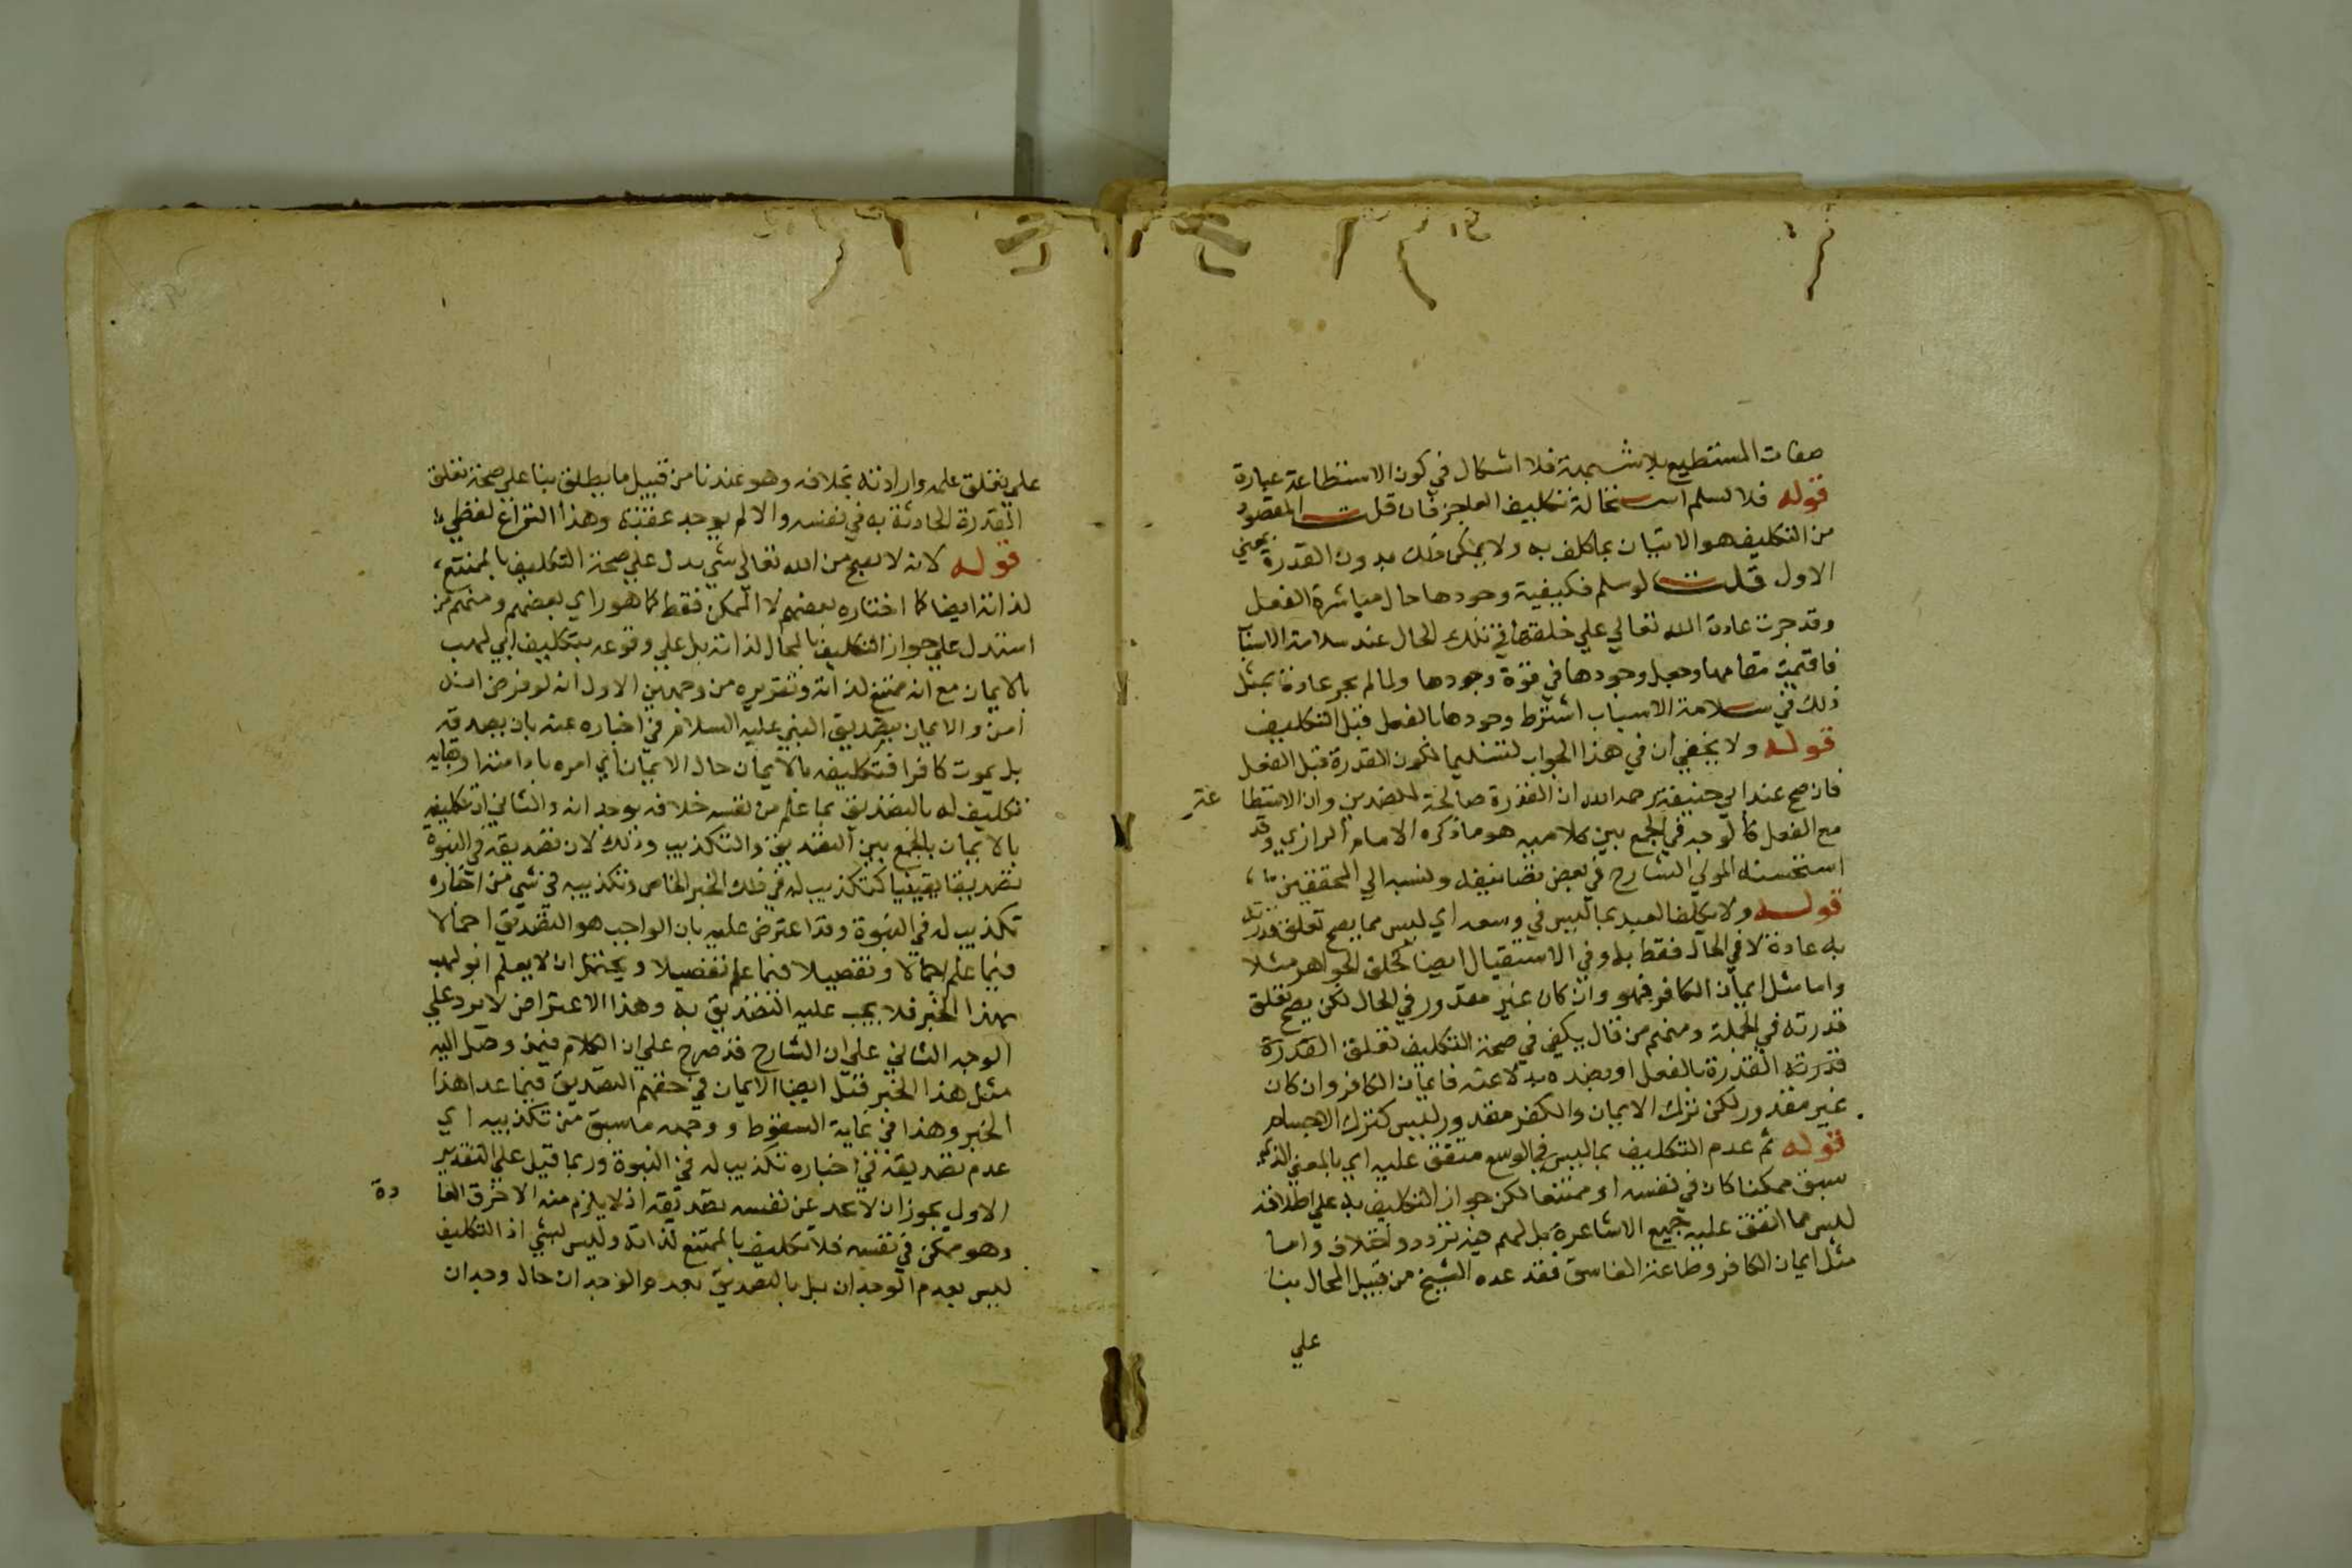 صفات المستطيع بلا شبهة فلا اشكال في كون الاستطاعة عبارة
قوله فلا نسلم استحالة تكليف العاجز فان قلت المقصود
من التكليف هو الاتيان بما كلف به ولا يمكن ذلك بدون القدرة بمعني
الاول قلت لو سلم فكيفية وجودها حال مباشرة الفعل
وقد جرت عادة الله تعالي علي خلقها في تلك الحال عند سلامة الاسباب
فاقيمت مقامها وجعل وجودها في قوة وجودها ولما لم يجر عادته بمثل
ذلك في سلامة الاسباب اشترط وجودها بالفعل قبل التكليف
قوله ولا يخفي ان في هذا الجواب تسليما لكون القدرة قبل الفعل
فان صح عند ابي حنيفة رحمه الله ان القدرة صالحة للضدين وان الاستطا عة
مع الفعل كالوجه في الجمع بين كلاميه هو ما ذكره الامام الرازي وقد
استحسنه المولي الشارح في بعض تصانيفه ونسبه الي المحققين
قوله ولا يكلف العبد بما ليس في وسعه اي ليس مما يصح تعلق قدرته
به عادة لا في الحال فقط بل وفي الاستقبال ايضا كخلق الجواهر مثلا
واما مثل ايمان الكافر فهو وان كان غير مقدور في الحال لكن يصح تعلق
قدرته في الجملة ومنهم من قال يكفي في صحة التكليف تعلق القدرة
قدرته القدرة بالفعل او بضده بدلا عنه فايمان الكافر وان كان
غير مقدور لكن ترك الايمان والكفر مقدور ليس كترك الاجسام
قوله ثم عدم التكليف بما ليس في الوسع متفق عليه اي بالمعني الذي
سبق ممكنا كان في نفسه او ممتنعا لكن جواز التكليف به علي اطلاقه
ليس مما اتفق عليه جميع الاشاعرة بل لهم فيه تردد واختلاف واما
مثل ايمان الكافر وطاعة الفاسق فقد عده الشيخ من قبيل المحال بنا
علي
علي تعلق علمه وارادته بخلافه وهو عندنا من قبيل ما يطلق بنا علي صحة تعلق
القدرة الحادثة به في نفسه والا لم يوجد عقيبه وهذا النزاع لفظي
قوله لانه لا يقبح من الله تعالي شي يدل علي صحة التكليف بالممتنع
لذاته ايضا كما اختاره بعضهم لا الممكن فقط كما هو راي بعضهم ومنهم من
استدل علي جواز التكليف بالمحال لذاته بل علي وقوعه بتكليف ابي لهب
بالايمان مع انه ممتنع لذاته وتقريره من وجهين الاول انه لو فرض انه
امن والايمان تصديق النبي عليه السلام في اخباره عنه بان يصدقه
بل يموت كافرا فتكليفه بالايمان حال الايمان اي امره بادامته او
تكليف له بالتصديق بما علم من نفسه خلافه بوجدانه والثاني ان تكليفه
بالايمان بالجمع بين التصديق والتكذيب وذلك لان تصديقه في النبوة
تصديقا يقينيا كتكذيب له في ذلك الخبر الخاص وتكذيبه في شي من اخباره
تكذيب له في النبوة وقد اعترض عليه بان الواجب هو التصديق اجمالا
فيما علم اجمالا وتفصيلا فيما علم تفصيلا ويحتمل ان لا يعلم ابو لهب
بهذا الخبر فلا يجب عليه التصديق به وهذا الاعتراض لا يرد علي
الوجه الثاني علي ان الشارح قد صرح علي ان الكلام فيمن وصل اليه
مثل هذا الخبر قيل ايضا الايمان في حقهم التصديق فيما عدا هذا
الخبر وهذا في غاية السقوط ووجهه ما سبق من تكذيبه اي
عدم تصديقه في اخباره تكذيب له في النبوة وربما قيل علي التقدير
الاول يجوز ان لا يجد عن نفسه تصديقه اذ لا يلزم منه الا خرق العا دة
وهو ممكن في نفسه فلا تكليف بالممتنع لذاته وليس بشي اذ التكليف
ليس بعدم الوجدان بل بالتصديق بعدم الوجدان حال وجدان